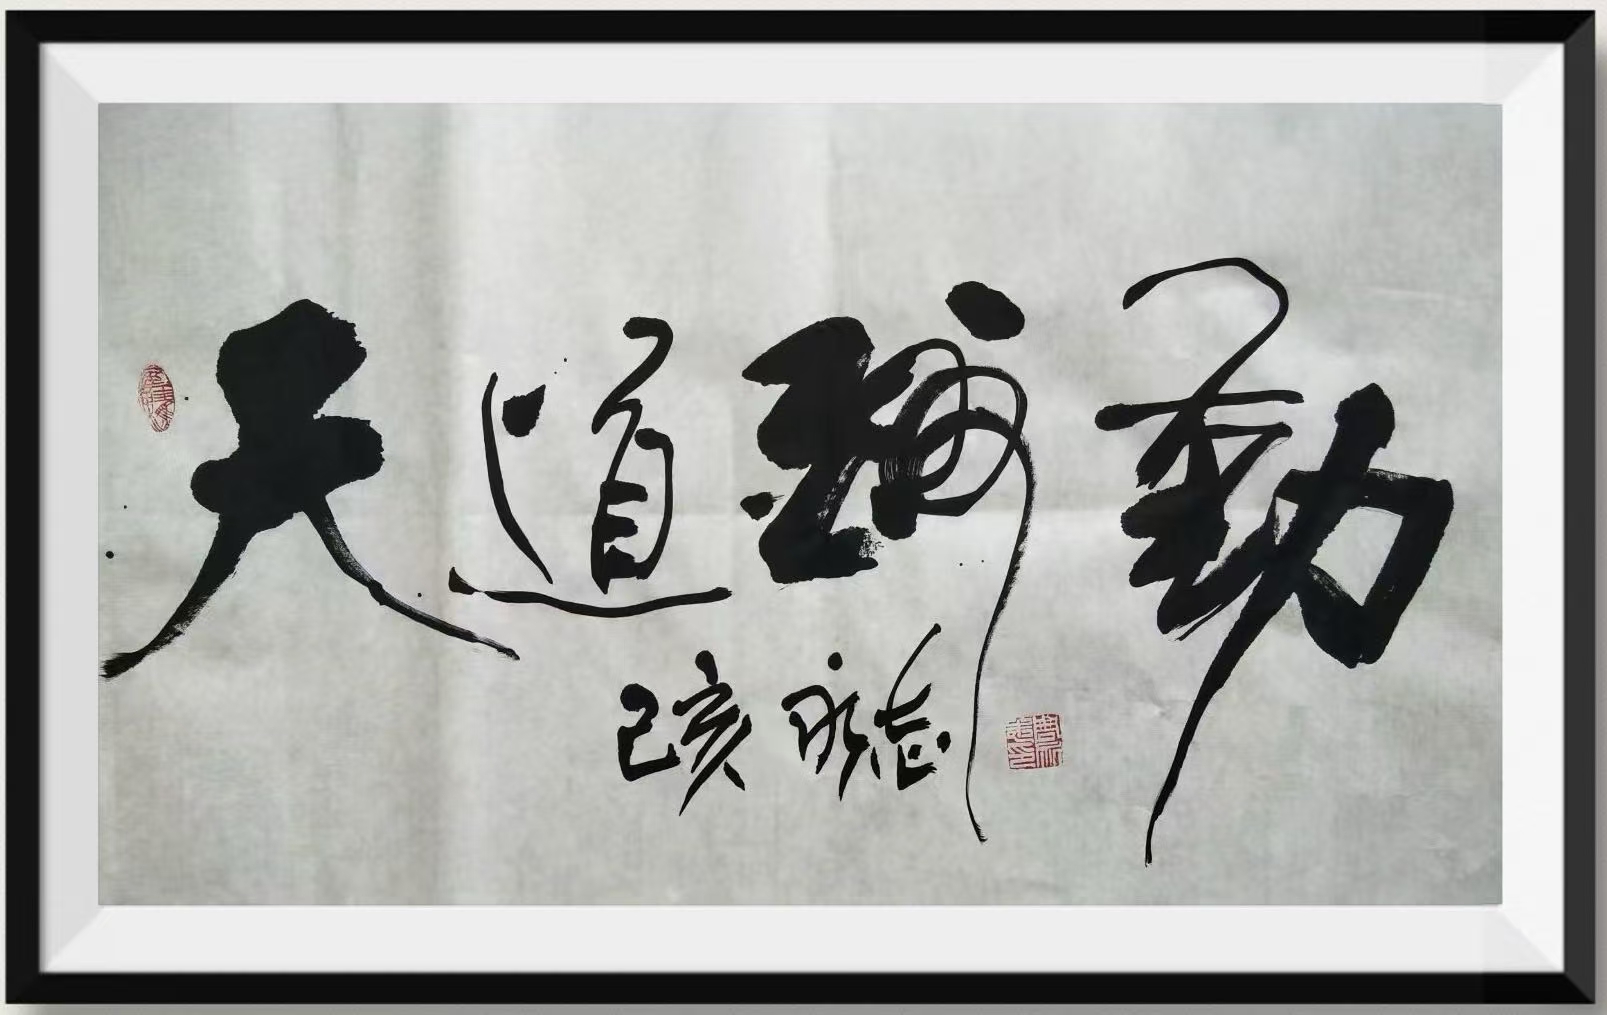 天道酬勤
己亥 永志